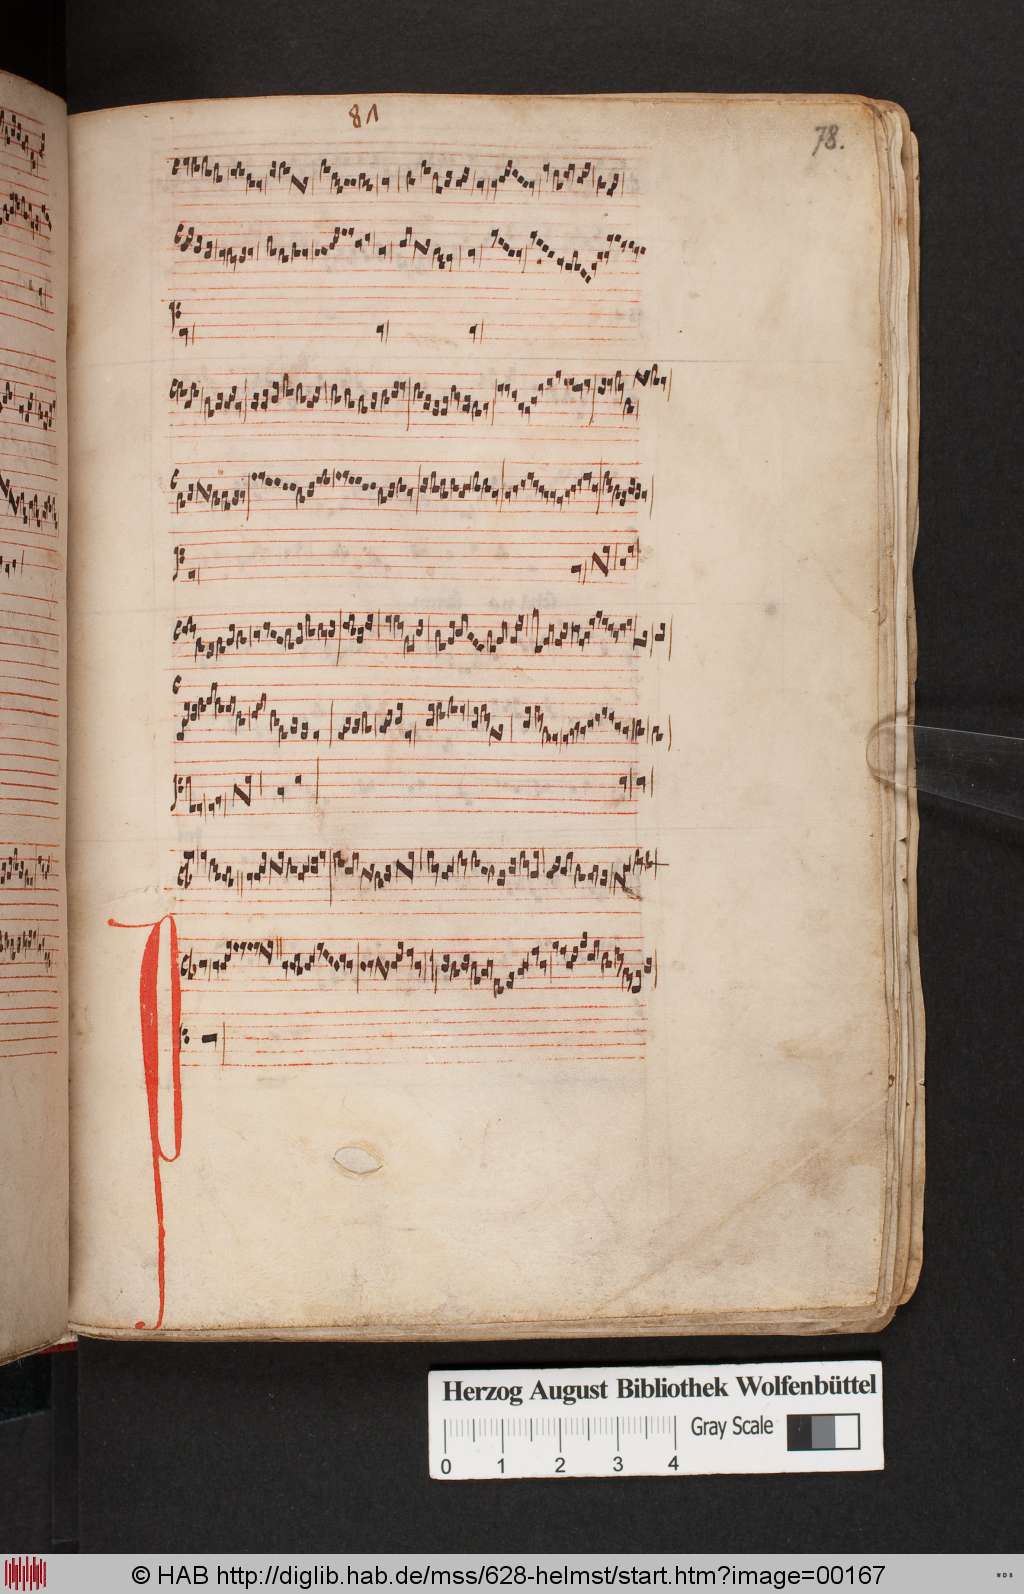 81
78.
P
Herzog August Bibliothek Wolfenbüttel
Gray Scale
0 1 2 3 4
© HAB http://diglib.hab.de/mss/628-helmst/start.htm?image=00167